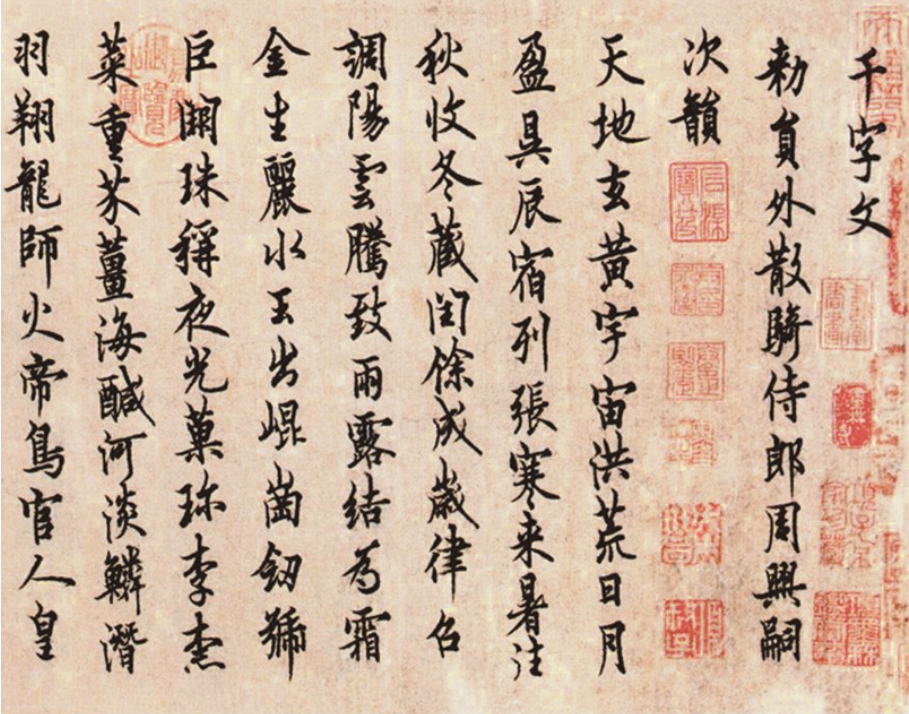 千字文
勑員外散騎侍郎周興嗣
次韻
天地玄黃宇宙洪荒日月
盈昃辰宿列張寒来暑往
秋收冬蔵閏餘成歲律召
調陽雲騰致雨露結為霜
金生麗水玉出崐崗劒號
巨闕珠稱夜光菓珎李柰
菜重芥薑海鹹河淡鱗潛
羽翔龍師火帝鳥官人皇